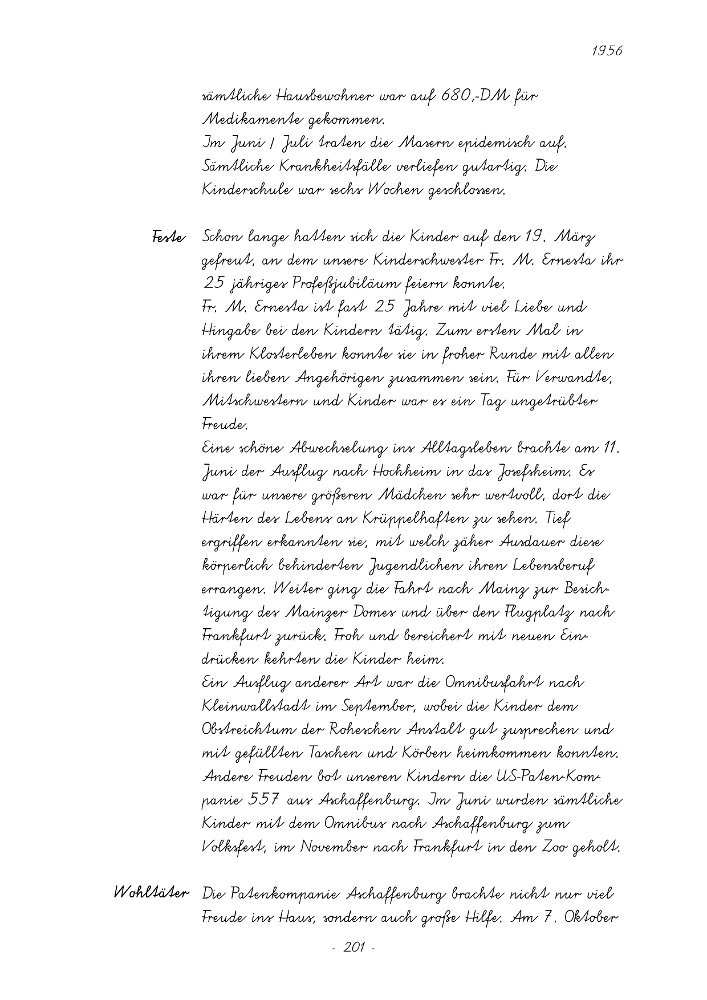 1956
sämtliche Hausbewohner war auf 680,-DM für
Medikamente gekommen.
Im Juni / Juli traten die Masern epidemisch auf.
Sämtliche Krankheitsfälle verliefen gutartig. Die
Kinderschule war sechs Wochen geschlossen.
Feste Schon lange hatten sich die Kinder auf den 19. März
gefreut, an dem unsere Kinderschwester Fr. M. Ernesta ihr
25 jähriges Profeßjubiläum feiern konnte.
Fr. M. Ernesta ist fast 25 Jahre mit viel Liebe und
Hingabe bei den Kindern tätig. Zum ersten Mal in
ihrem Klosterleben konnte sie in froher Runde mit allen
ihren lieben Angehörigen zusammen sein. Für Verwandte,
Mitschwestern und Kinder war es ein Tag ungetrübter
Freude.
Eine schöne Abwechselung ins Alltagsleben brachte am 11.
Juni der Ausflug nach Hochheim in das Josefsheim. Es
war für unsere größeren Mädchen sehr wertvoll, dort die
Härten des Lebens an Krüppelhaften zu sehen. Tief
ergriffen erkannten sie, mit welch zäher Ausdauer diese
körperlich behinderten Jugendlichen ihren Lebensberuf
errangen. Weiter ging die Fahrt nach Mainz zur Besich-
tigung des Mainzer Domes und über den Flugplatz nach
Frankfurt zurück. Froh und bereichert mit neuen Ein-
drücken kehrten die Kinder heim.
Ein Ausflug anderer Art war die Omnibusfahrt nach
Kleinwallstadt im September, wobei die Kinder dem
Obstreichtum der Roheschen Anstalt gut zusprechen und
mit gefüllten Taschen und Körben heimkommen konnten.
Andere Freuden bot unseren Kindern die US-Paten-Kom-
panie 557 aus Aschaffenburg. Im Juni wurden sämtliche
Kinder mit dem Omnibus nach Aschaffenburg zum
Volksfest, im November nach Frankfurt in den Zoo geholt.
Wohltäter Die Patenkompanie Aschaffenburg brachte nicht nur viel
Freude ins Haus, sondern auch große Hilfe. Am 7. Oktober
- 201 -